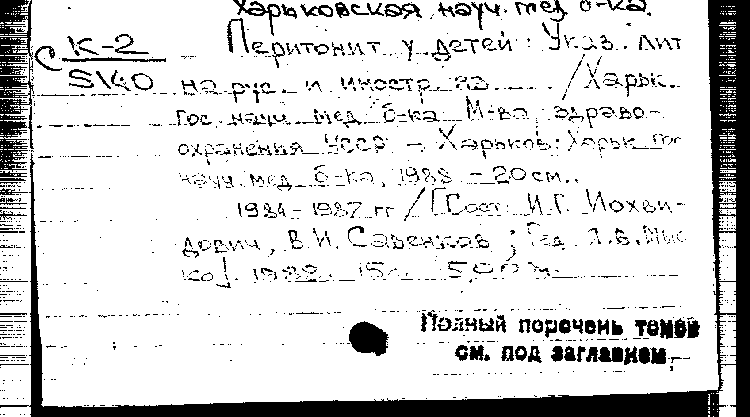 Харьковская науч. мед. б-ка.
К-2 Перитонит у детей: Указ. лит
5140 на рус. и иностр. яз. ... / Харьк.
гос. науч. мед. б-ка М-ва здраво-
охранения УССР. – Харьков: Харьк. гос
науч. мед. б-ка, 1988 – 20 см..
1984-1987 гг / [Сост. И.Г. Иохви-
дович, В.И. Савенков; Ред.
ко]. 1988. 15 с.
Полный перечень томов
см. под заглавием,